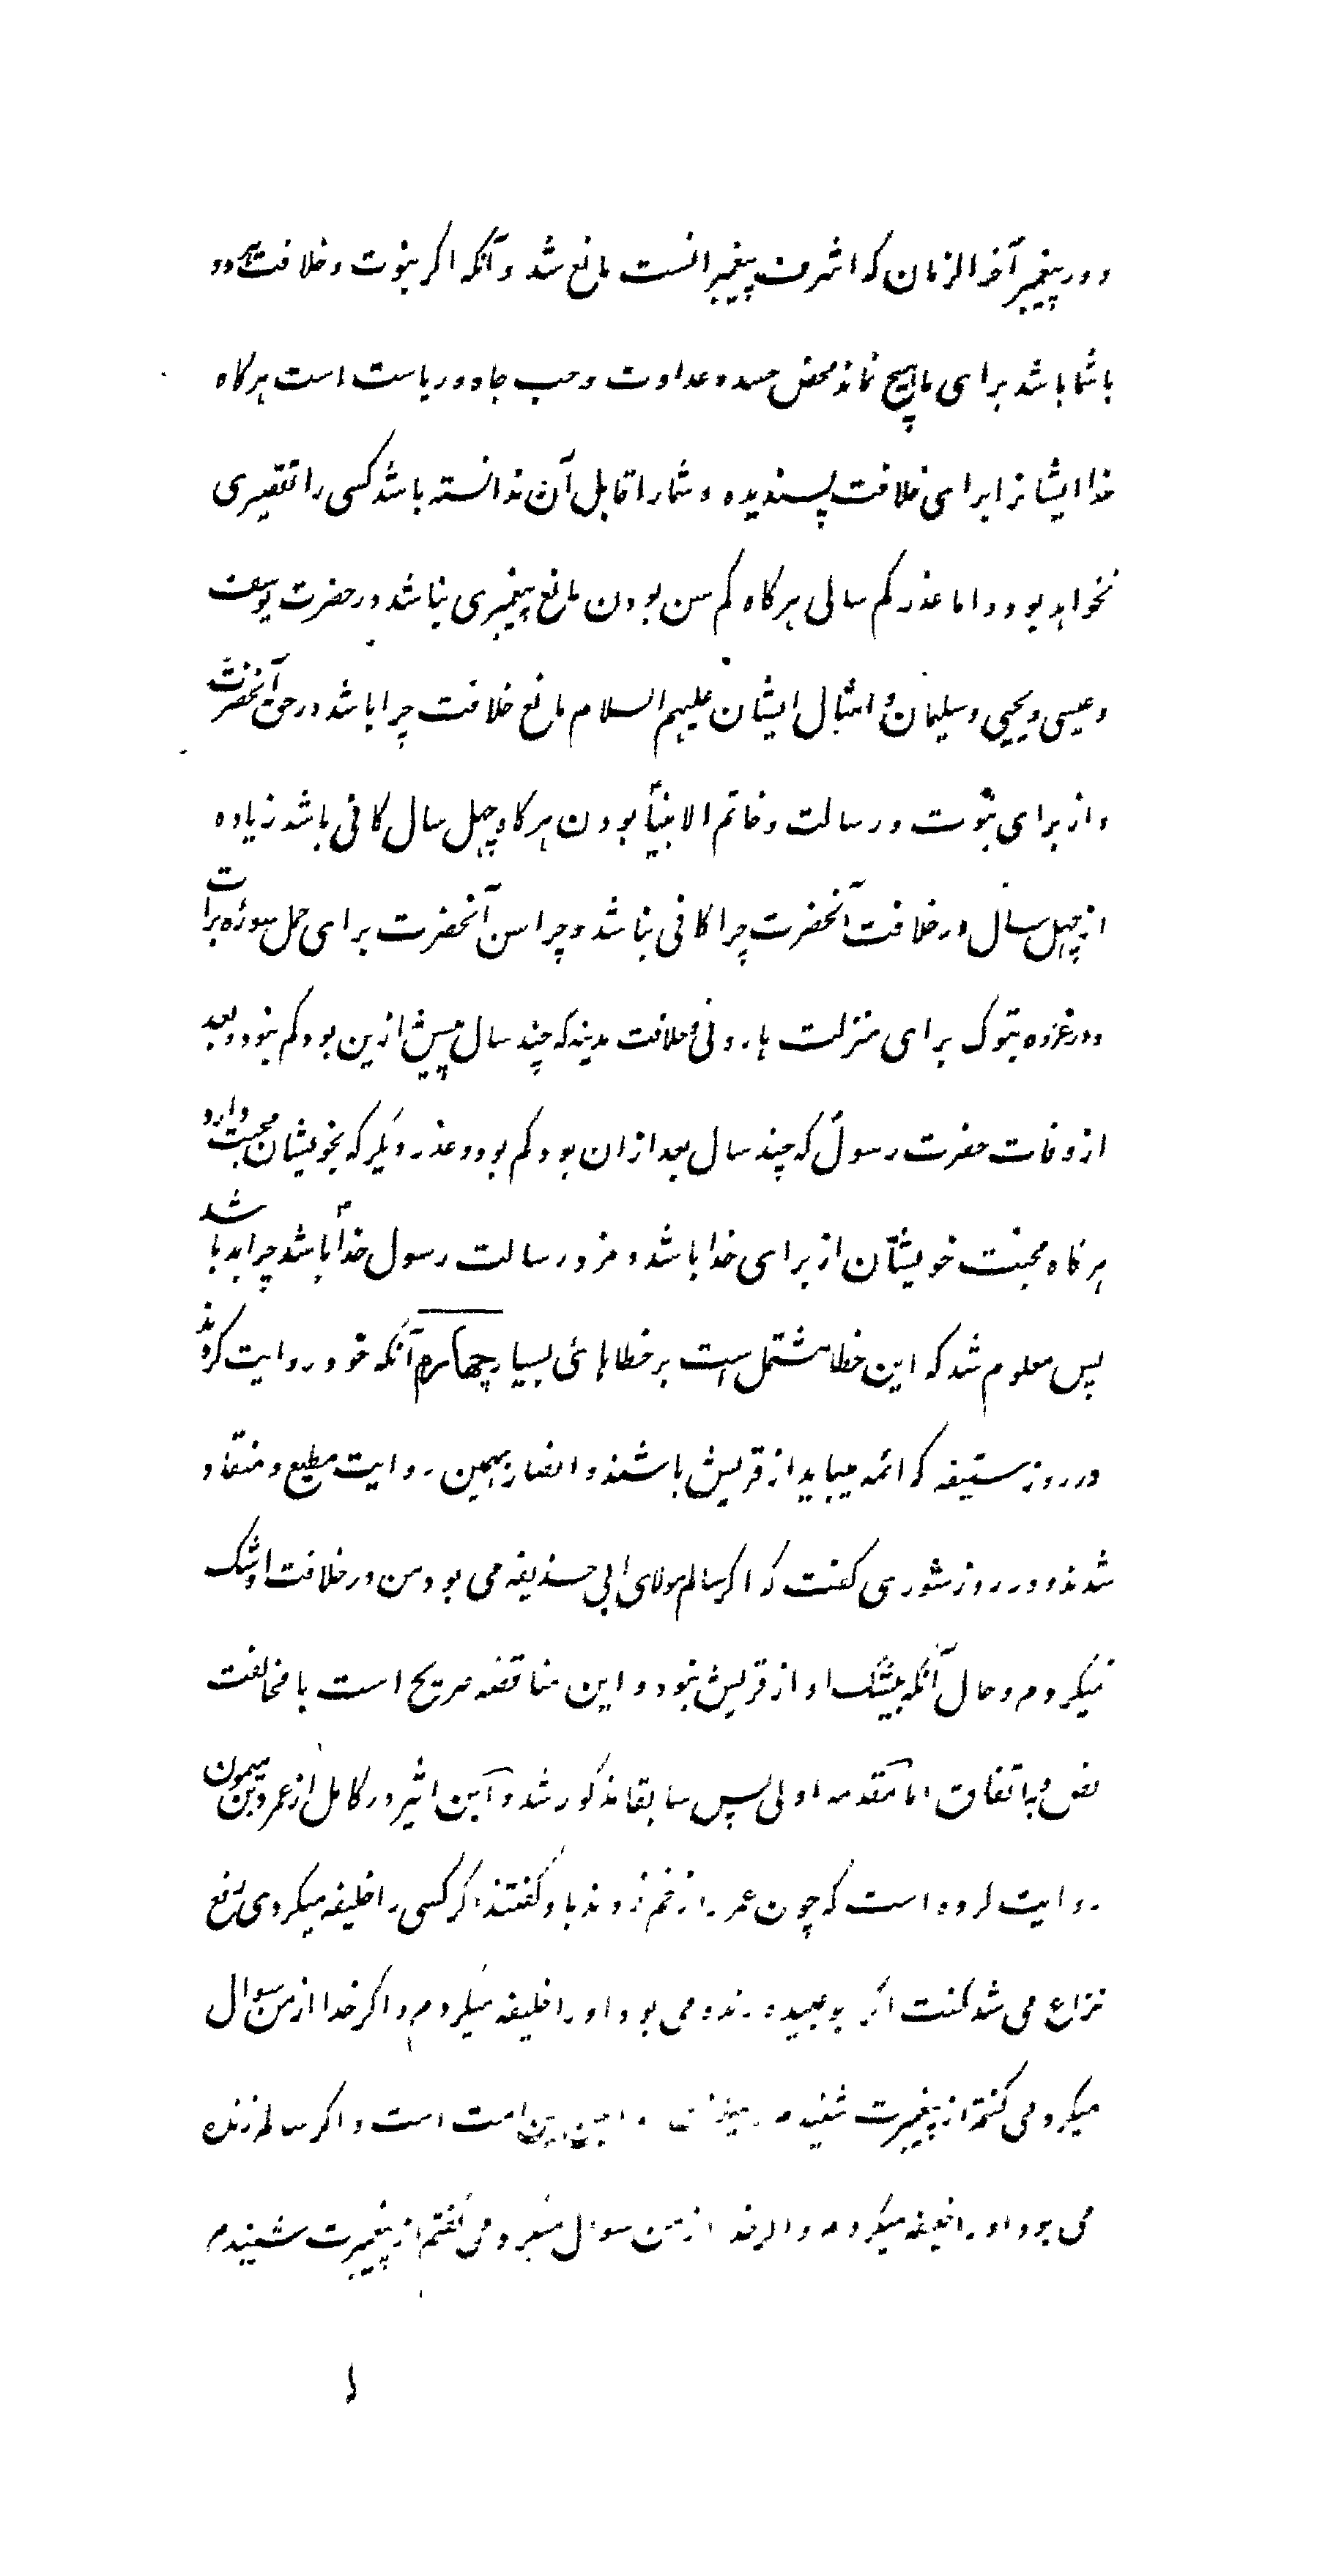 و در پیغمبر آخر الزمان که اشرف پیغمبرانست مانع شد و آنکه اکر نبوت و خلافت هر دو
با شما باشد برای ما هیچ نماند محض حسد و عداوت و حب جاه و ریاست است هرکاه
خدا ایشانرا برای خلافت پسندیده و شما را قابل آن ندانسته باشد کسی را تقصیری
نخواهد بود و اما عذر کم سالی هرکاه کم سن بودن مانع پیغمبری نباشد در حضرت یوسف
و عیسی و یحیی و سلیمان و امثال ایشان علیهم السلام مانع خلافت چرا باشد در حق آنحضرت
و از برای نبوت و رسالت و خاتم الانبیأ بودن هرکاه چهل سال کافی باشد زیاده
از چهل سال در خلافت آنحضرت چرا کافی نباشد و چرا سن آنحضرت برای حمل سوره برات
و در غزوه تبوک برای منزلت هارونی و خلافت مدینه که چند سال پیش ازین بود کم نبود و بعد
از وفات حضرت رسول که چند سال بعد ازان بود کم بود و عذر دیکر که بخویشان محبت دارد
هرکاه محبت خویشان از برای خدا باشد و مزد رسالت رسول خدا باشد چرا بد باشد
پس معلوم شد که این خطا مشتمل است بر خطاهائی بسیار چهارم آنکه خود روایت کردند
در روز سقیفه که ائمه میباید از قریش باشند و انصار بهمین روایت مطیع و منقاد
شدند و در روز شوری کفت که اکر سالم مولای ابی حذیفه می بود من در خلافت او شک
نمیکردم و حال آنکه بیشک او از قریش نبود و این مناقضه صریح است با مخالفت
نص و باتفاق اما مقدمه اولی پس سابقا مذکور شد و ابن اثیر در کامل از عمرو بن میمون
روایت کرده است که چون عمر را زخم زدند باو کفتند اکر کسی را خلیفه میکردی رفع
نزاع می شد کفت اکر بو عبیده زنده می بود او را خلیفه میکردم و اکر خدا از من سوال
میکرد می کفتم از پیغمبرت شنیدم امین این امت است و اکر سالم زنده
می بود او را خلیفه میکردم و اکر خدا از من سوال میکرد می کفتم از پیغمبرت شنیدم